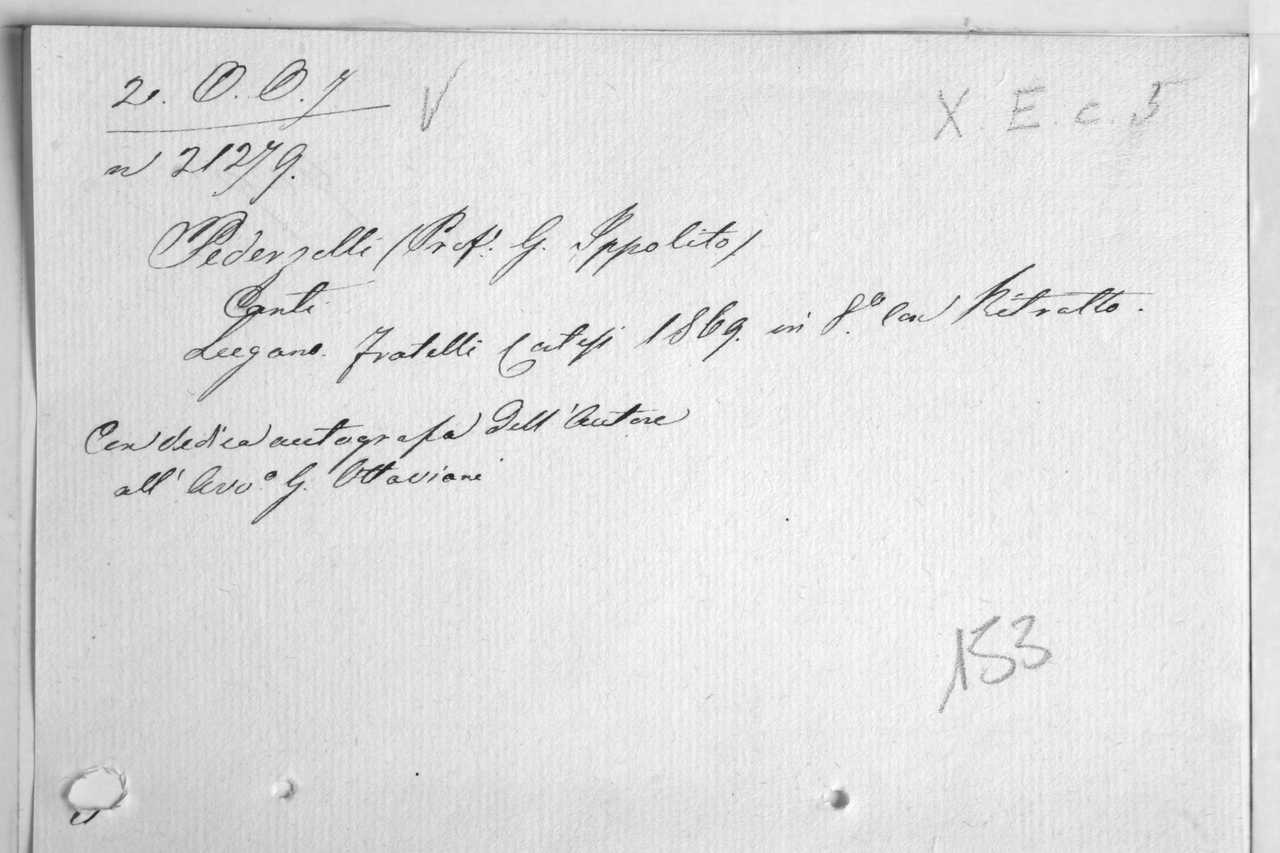 2. O. O. 7 V X. E. c. 5
n 21279.
Pederzolli (Prof. G. Ippolito)
Canti
Lugano. Fratelli Cortesi 1869. in 8.º Con Ritratto.
Con dedica autografa dell'Autore
all'Avv.º G. Ottaviani
153